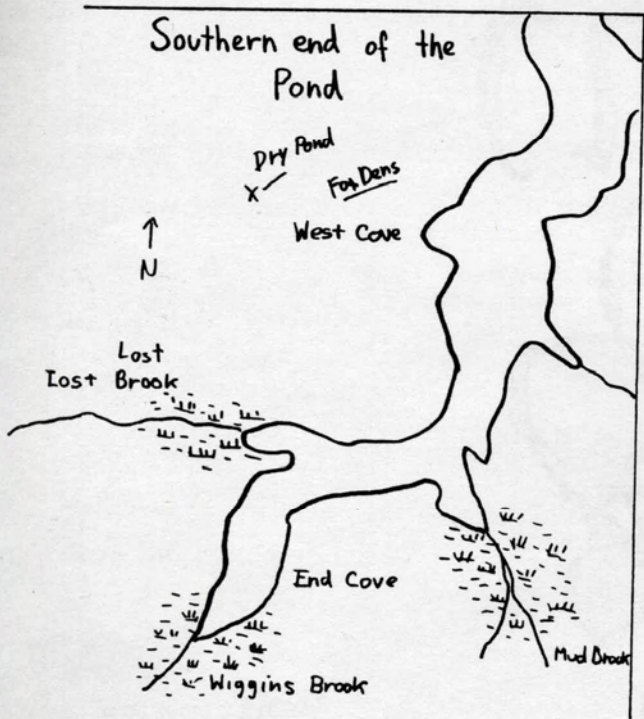 Southern end of the
Pond
Dry Pond
X
Fox Dens
West Cove
N
Lost
Iost Brook
End Cove
Mud Brook
Wiggins Brook